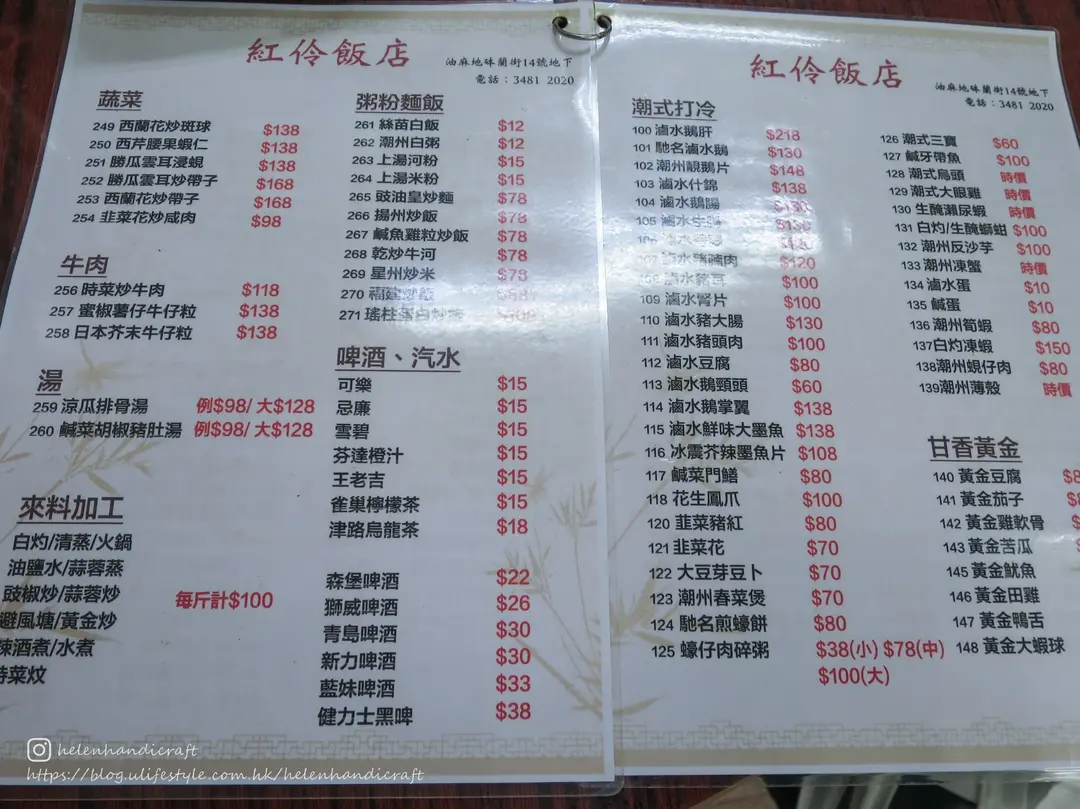 紅伶飯店
油麻地砵蘭街14號地下
電話：3481 2020
蔬菜
249 西蘭花炒斑球 $138
250 西芹腰果蝦仁 $138
251 勝瓜雲耳浸蜆 $138
252 勝瓜雲耳炒帶子 $168
253 西蘭花炒帶子 $168
254 韭菜花炒咸肉 $98
牛肉
256 時菜炒牛肉 $118
257 蜜椒薯仔牛仔粒 $138
258 日本芥末牛仔粒 $138
湯
259 涼瓜排骨湯 例$98/ 大$128
260 鹹菜胡椒豬肚湯 例$98/ 大$128
來料加工
白灼/清蒸/火鍋
油鹽水/蒜蓉蒸
豉椒炒/蒜蓉炒
避風塘/黃金炒
辣酒煮/水煮
時菜炆
每斤計$100
粥粉麵飯
261 絲苗白飯 $12
262 潮州白粥 $12
263 上湯河粉 $15
264 上湯米粉 $15
265 豉油皇炒麵 $78
266 揚州炒飯 $78
267 鹹魚雞粒炒飯 $78
268 乾炒牛河 $78
269 星州炒米 $78
270 福建炒飯
271 瑤柱蛋白炒
啤酒、汽水
可樂 $15
忌廉 $15
雪碧 $15
芬達橙汁 $15
王老吉 $15
雀巢檸檬茶 $15
津路烏龍茶 $18
森堡啤酒 $22
獅威啤酒 $26
青島啤酒 $30
新力啤酒 $30
藍妹啤酒 $33
健力士黑啤 $38
紅伶飯店
油麻地砵蘭街14號地下
電話：3481 2020
潮式打冷
100 滷水鵝肝 $218
101 馳名滷水鵝 $130
102 潮州靚鵝片 $148
103 滷水什錦 $138
104 滷水鵝腸 $130
105 滷水生 $130
106 滷水
107 滷水豬喃肉 $120
108 滷水豬耳 $100
109 滷水腎片 $100
110 滷水豬大腸 $130
111 滷水豬頭肉 $100
112 滷水豆腐 $80
113 滷水鵝頸頭 $60
114 滷水鵝掌翼 $138
115 滷水鮮味大墨魚 $138
116 冰震芥辣墨魚片 $108
117 鹹菜門鱔 $80
118 花生鳳爪 $100
120 韭菜豬紅 $80
121 韭菜花 $70
122 大豆芽豆卜 $70
123 潮州春菜煲 $70
124 馳名煎蠔餅 $80
125 蠔仔肉碎粥 $38(小) $78(中)
$100(大)
126 潮式三寶 $60
127 鹹牙帶魚 $100
128 潮式烏頭 時價
129 潮式大眼雞 時價
130 生醃瀨尿蝦 時價
131 白灼/生醃螄蚶 $100
132 潮州反沙芋 $100
133 潮州凍蟹 時價
134 滷水蛋 $10
135 鹹蛋 $10
136 潮州筍蝦 $80
137 白灼凍蝦 $150
138 潮州蜆仔肉 $80
139 潮州薄殼 時價
甘香黃金
140 黃金豆腐
141 黃金茄子
142 黃金雞軟骨
143 黃金苦瓜
145 黃金魷魚
146 黃金田雞
147 黃金鴨舌
148 黃金大蝦球
helenhandicraft
https://blog.ulifestyle.com.hk/helenhandicraft